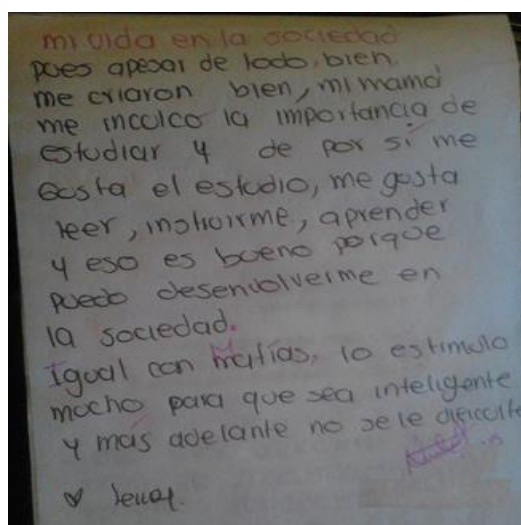 mi vida en la sociedad
pues apesar de todo, bien
me criaron bien, mi mamá
me inculco la importancia de
estudiar y de por si me
gusta el estudio, me gusta
leer, instruirme, aprender
y eso es bueno porque
puedo desenvolverme en
la sociedad.
Igual con Matías, lo estimulo
mucho para que sea inteligente
y mas adelante no se le dificulte